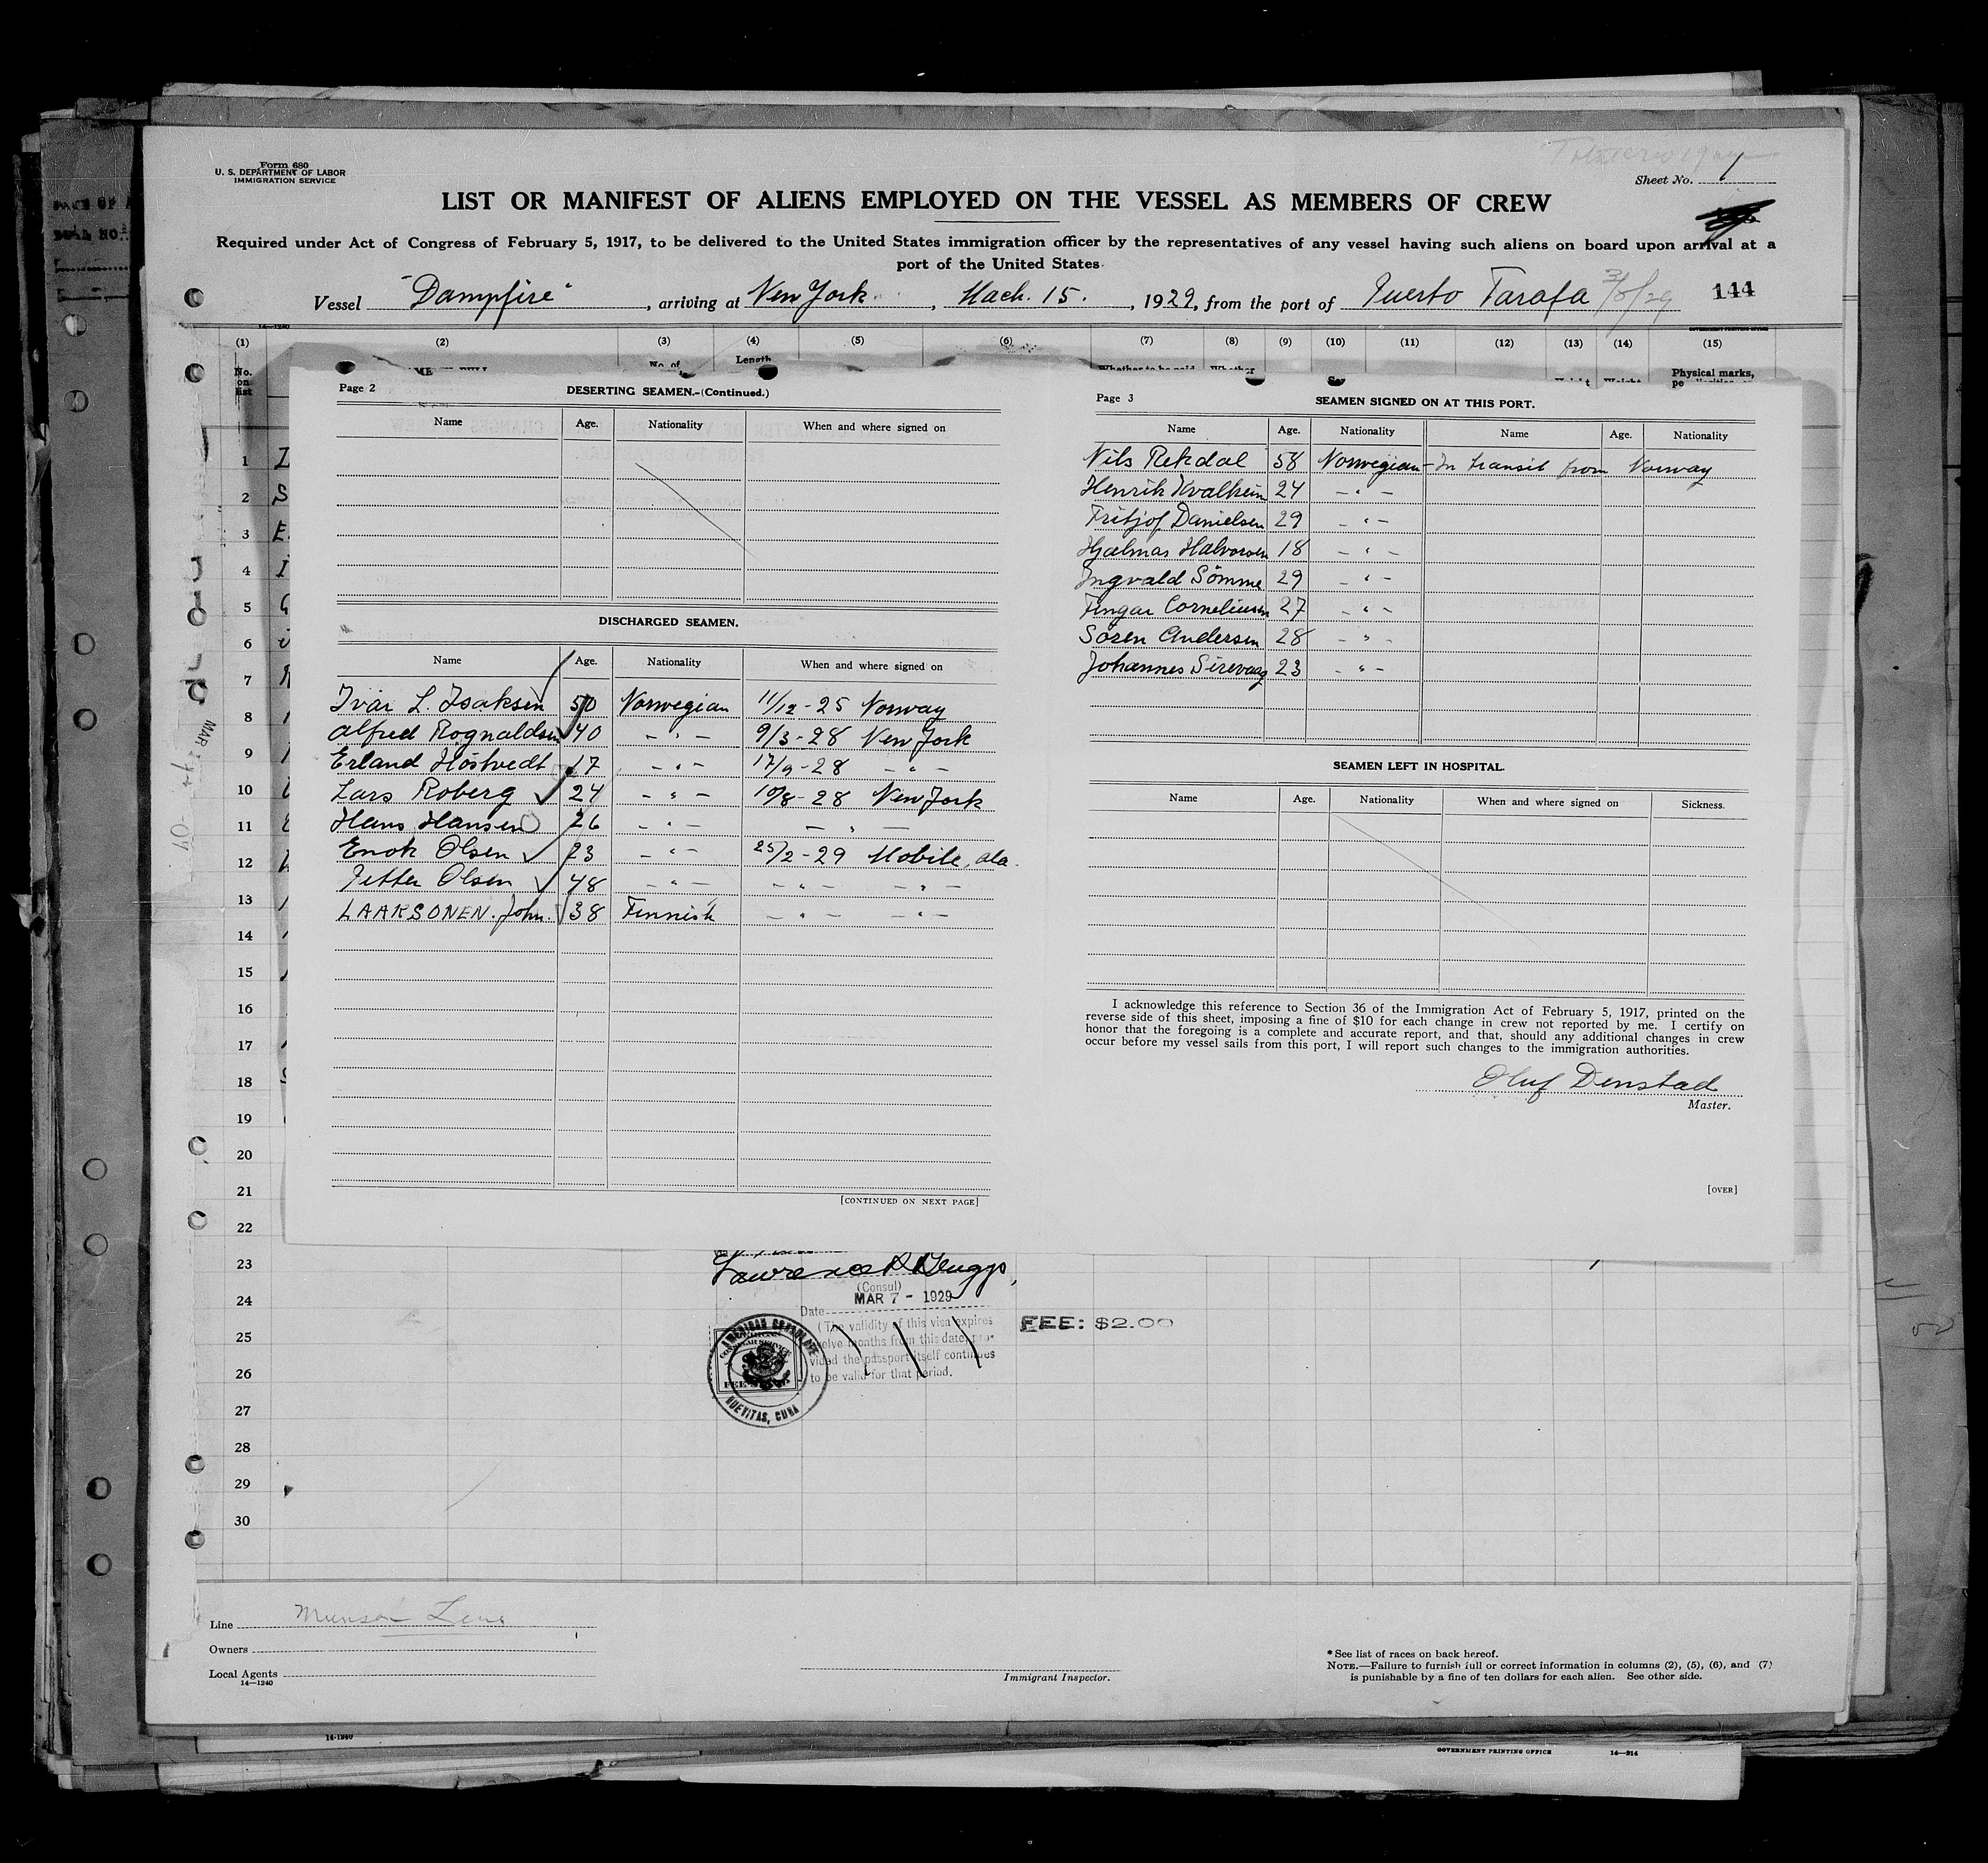 Form 680
U. S. DEPARTMENT OF LABOR
IMMIGRATION SERVICE
Sheet No. 1
LIST OR MANIFEST OF ALIENS EMPLOYED ON THE VESSEL AS MEMBERS OF CREW
Required under Act of Congress of February 5, 1917, to be delivered to the United States immigration officer by the representatives of any vessel having such aliens on board upon arrival at a
port of the United States.
Vessel "Dampfire", arriving at New York, Mach. 15., 1929, from the port of Puerto Tarafa 3/8/29 144
14-1240 GOVERNMENT PRINTING OFFICE
(1) (2) (3) (4) (5) (6) (7) (8) (9) (10) (11) (12) (13) (14) (15)
No. on list No. of Length Whether to be paid Whether Physical marks,
Page 2 DESERTING SEAMEN.-(Continued.)
Name Age. Nationality When and where signed on
DISCHARGED SEAMEN.
Name Age. Nationality When and where signed on
Ivar L. Isaksen 50 Norwegian 11/12-25 Norway
Alfred Rognaldsen 40 - " - 9/3-28 New York
Erland Höstvedt 17 - " - 17/9-28 - " -
Lars Roberg 24 - " - 10/8-28 New York
Hans Hansen 26 - " - - " -
Enok Olsen 23 - " - 25/2-29 Mobile, ala.
Petter Olsen 48 - " - - " - - " -
LAAKSONEN. John. 38 Finnish - " - - " -
[CONTINUED ON NEXT PAGE]
Page 3 SEAMEN SIGNED ON AT THIS PORT.
Name Age. Nationality Name Age. Nationality
Nils Rekdal 58 Norwegian - In transit from Norway
Henrik Kvalheim 24 - " -
Fritjof Danielsen 29 - " -
Hjalmar Halvorsen 18 - " -
Ingvald Sömme 29 - " -
Fingar Corneliusen 27 - " -
Sören Andersen 28 - " -
Johannes Sirevaag 23 - " -
SEAMEN LEFT IN HOSPITAL.
Name Age. Nationality When and where signed on Sickness.
I acknowledge this reference to Section 36 of the Immigration Act of February 5, 1917, printed on the
reverse side of this sheet, imposing a fine of $10 for each change in crew not reported by me. I certify on
honor that the foregoing is a complete and accurate report, and that, should any additional changes in crew
occur before my vessel sails from this port, I will report such changes to the immigration authorities.
Oluf Denstad
Master.
[OVER]
1
2
3
4
5
6
7
8
9
10
11
12
13
14
15
16
17
18
19
20
21
22
23
24
25
26
27
28
29
30
Lawrence
(Consul)
Date MAR 7 - 1929
(The validity of this visa expires
twelve months from this date, pro-
vided the passport itself continues
to be valid for that period.
FEE: $2.00
AMERICAN CONSULATE
NUEVITAS, CUBA
Line Munson Line
Owners
Local Agents
14-1240
Immigrant Inspector.
* See list of races on back hereof.
NOTE.—Failure to furnish full or correct information in columns (2), (5), (6), and (7)
is punishable by a fine of ten dollars for each alien. See other side.
14-1240
GOVERNMENT PRINTING OFFICE 14-914